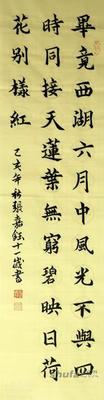 畢竟西湖六月中風光不與四
時同接天蓮葉無窮碧映日荷
花別樣紅
己亥年秋張嘉鈺十一歲書